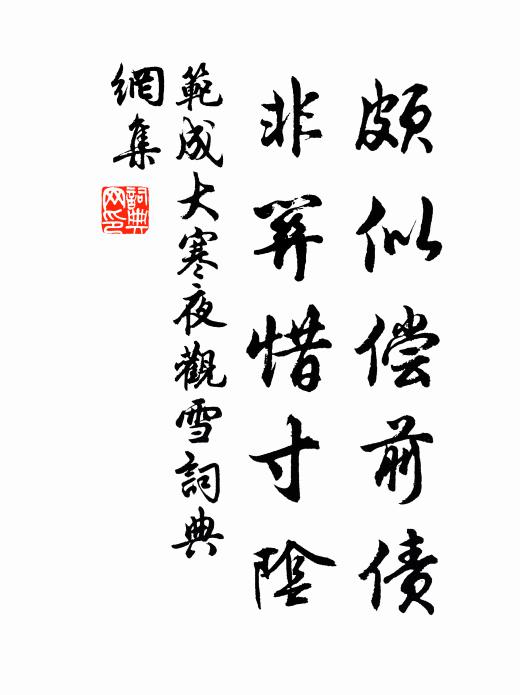 颇似偿前债
非關惜寸陰
範成大寒夜觀雪詞典
網集
詞典网印